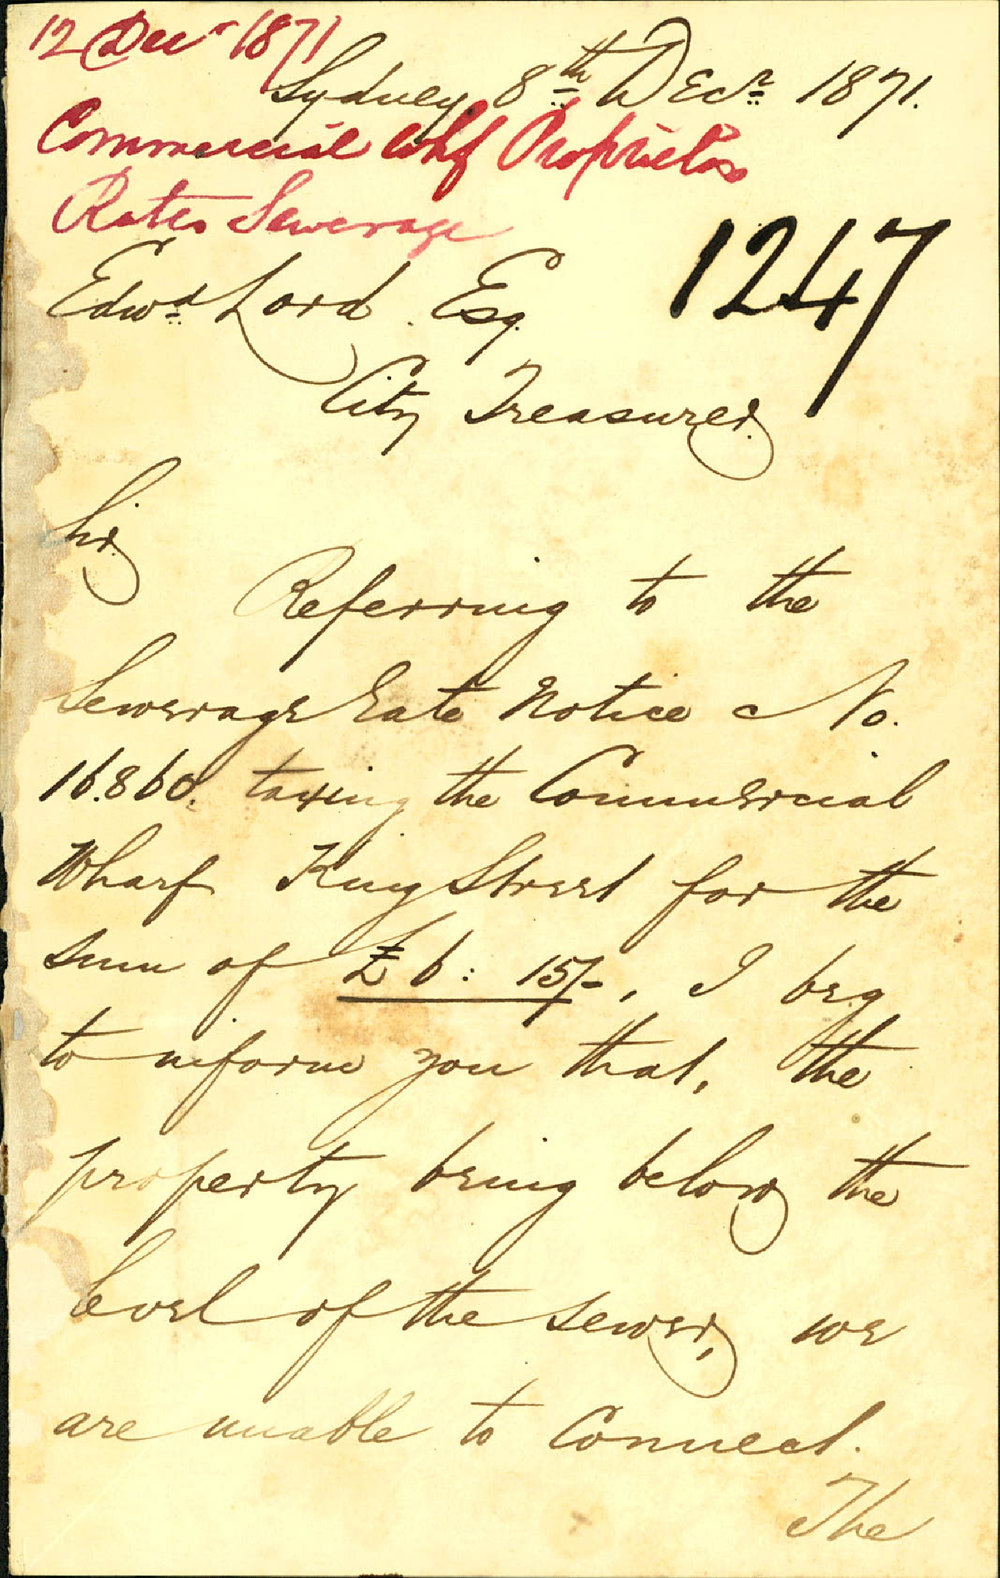 12 Decr 1871
Sydney 8th Decr 1871.
Commercial Whf Proprietors
Rates Sewerage
1247
Edwd Lord. Esq.
City Treasurer.
Sir
Referring to the
Sewerage Rate Notice No.
16.860. taxing the Commercial
Wharf King Street for the
sum of £6: 15/-, I beg
to inform you that, the
property being below the
level of the sewer, we
are unable to Connect.
The